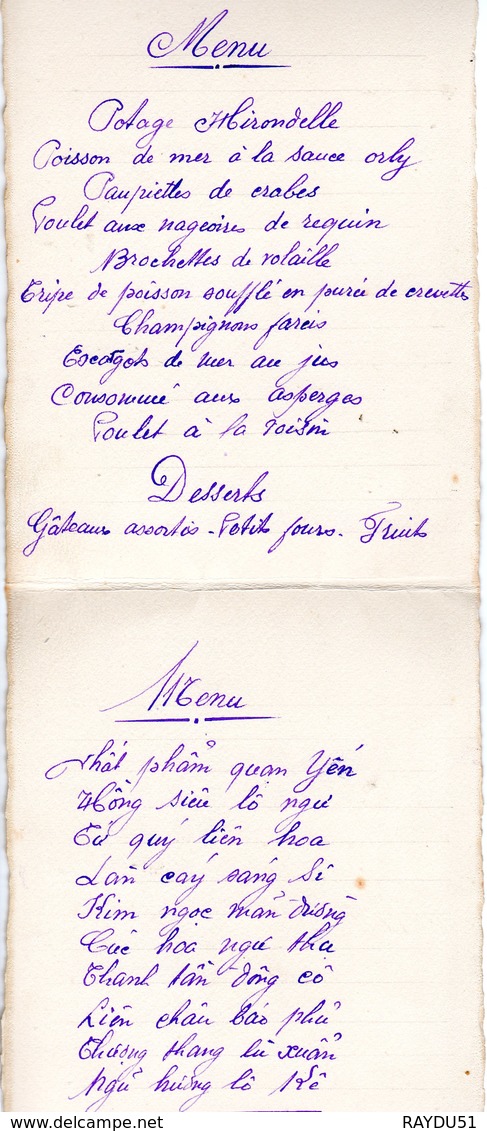 Menu
Potage Hirondelle
Poisson de mer à la sauce orly
Paupiettes de crabes
Poulet aux nageoires de requin
Brochettes de volaille
Tripe de poisson soufflé en purée de crevettes
Champignons farcis
Escargots de mer au jus
Consommé aux asperges
Poulet à la toison
Desserts
Gâteaux assortis - Petits fours - Fruits
Menu
Nhất phẩm quan Yến
Hồng siêu lô ngư
Tứ quý liên hoa
Lân cáy sang Sí
Kim ngọc mãn đường
Cúc hoa ngư thu
Thanh tân đông cô
Liên châu báo phủ
Thượng thang lũ xuẩn
Ngũ hương lô Kê
delcampe.net
RAYDU51